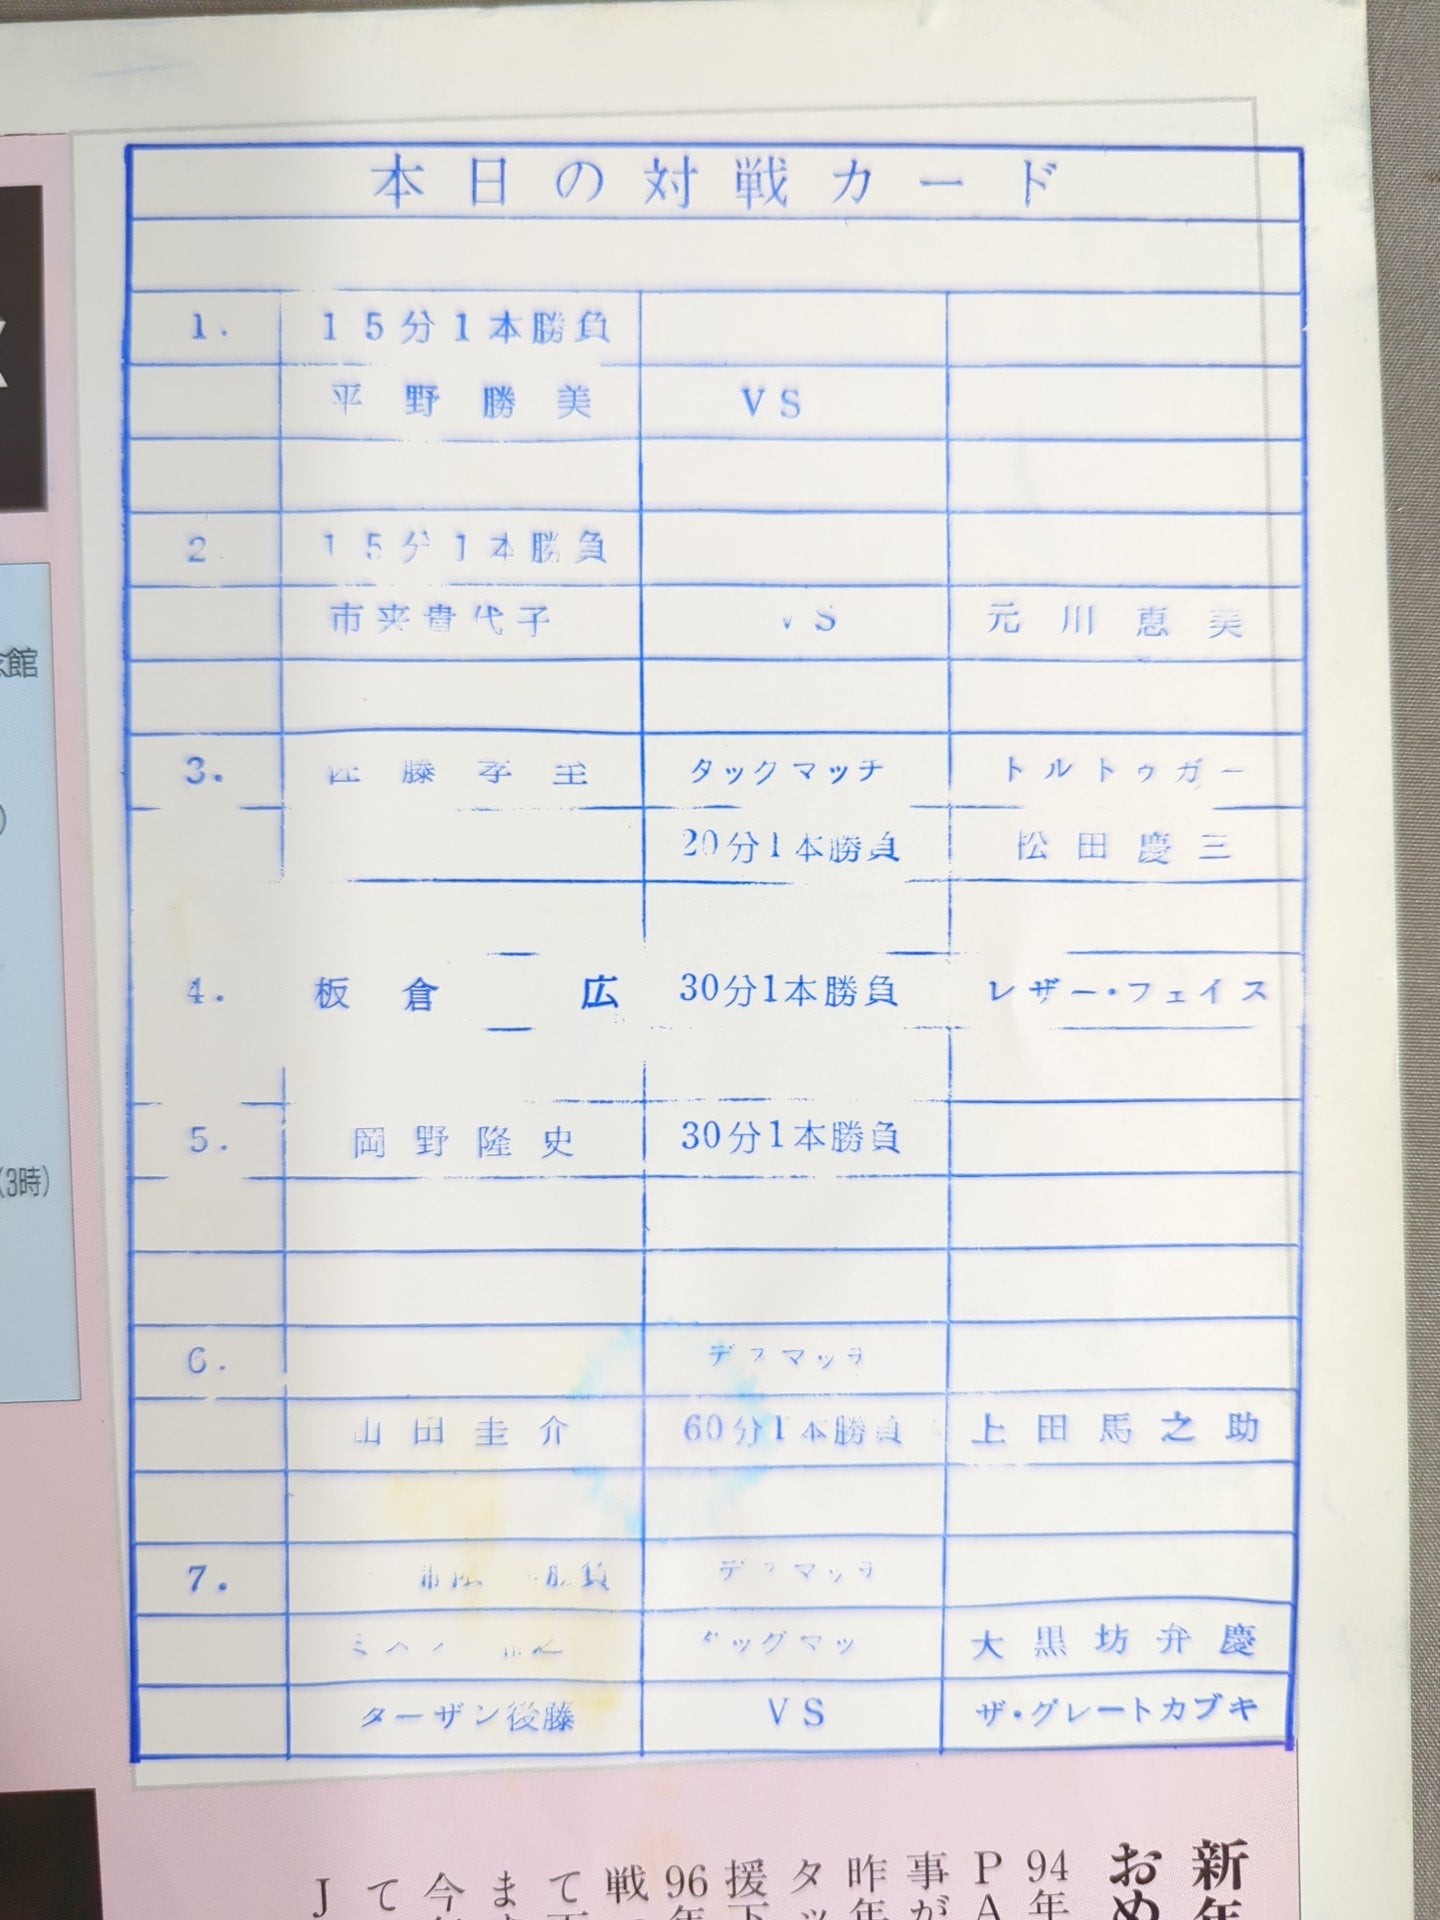 本日の対戦カード
1. 15分1本勝負
平野勝美 VS
2. 15分1本勝負
市来貴代子 VS 元川恵美
3. 佐藤孝 タックマッチ トルトゥガー
20分1本勝負 松田慶三
4. 板倉 広 30分1本勝負 レザー・フェイス
5. 岡野隆史 30分1本勝負
6. デスマッチ
山田圭介 60分1本勝負 上田馬之助
7. 負 デスマッチ
タッグマッ 大黒坊弁慶
ターザン後藤 VS ザ・グレートカブキ
念館
(3時)
新年
おめ
94年
PA
事が
昨年
タッ
援下
96年
戦
て
ま
今
て
J